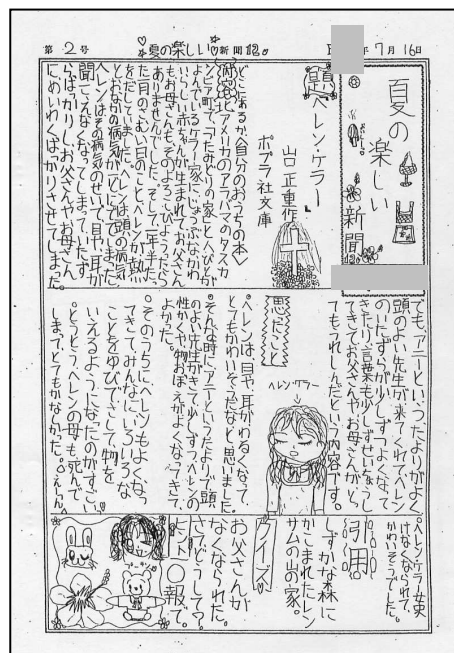 第2号
夏の楽しい新聞
年7月16日
夏の楽しい新聞
題「ヘレン・ケラー」
山口正重作
ポプラ社文庫
アメリカのアラバマのタスカ
ンビア町で「つたみどりの家」と人びとが
よんでいるケラー家にじょうぶなかわ
いらしい赤ちゃんが生まれてお父さん
もお母さんもそのよろこびようったら
ありませんでした。そして一年半たっ
た二月のさむい日のことヘレンが熱
をだしていました。ヘレンは頭の病気
とおなかの病気がでてしまった。
ヘレンはその病気のせいで、目や耳が
聞こえなくなってしまっていたずら
ばかりしお父さんやお母さん
にめいわくばかりさせてしまった。
でも、アニーといったよりがよく
頭のよい先生が来てくれてヘレン
のいたずらが少しずつよくなって
きたり、言葉も少しずつ
てきてお父さんやお母さんがとっ
てもうれしんだという内容です。
思ったこと
ヘレン・ケラー
・ヘレンは目や耳がわるくなって、
とてもかわいそうだなと思いました。
・そんな時にアニーというたよりで頭
のよい先生がきて少しずつヘレンの
性かくや物おぼえがよくなってきて、
よかった。
・そのうちにヘレンもよくなっ
てきてみんなにいろいろな
ことをゆびでさして物を
いえるようになったのがすごい。
・とうとうヘレンの母も死んで
しまいとてもかなしかった。
・ヘレンケラー女史
けはなくなられて、
かわいそうでした。
引用
しずかな森に
かこまれたレン
サムの山の家。
クイズ
お父さんが
なくなられた。
さてどうして?
ヒント
〇報で。